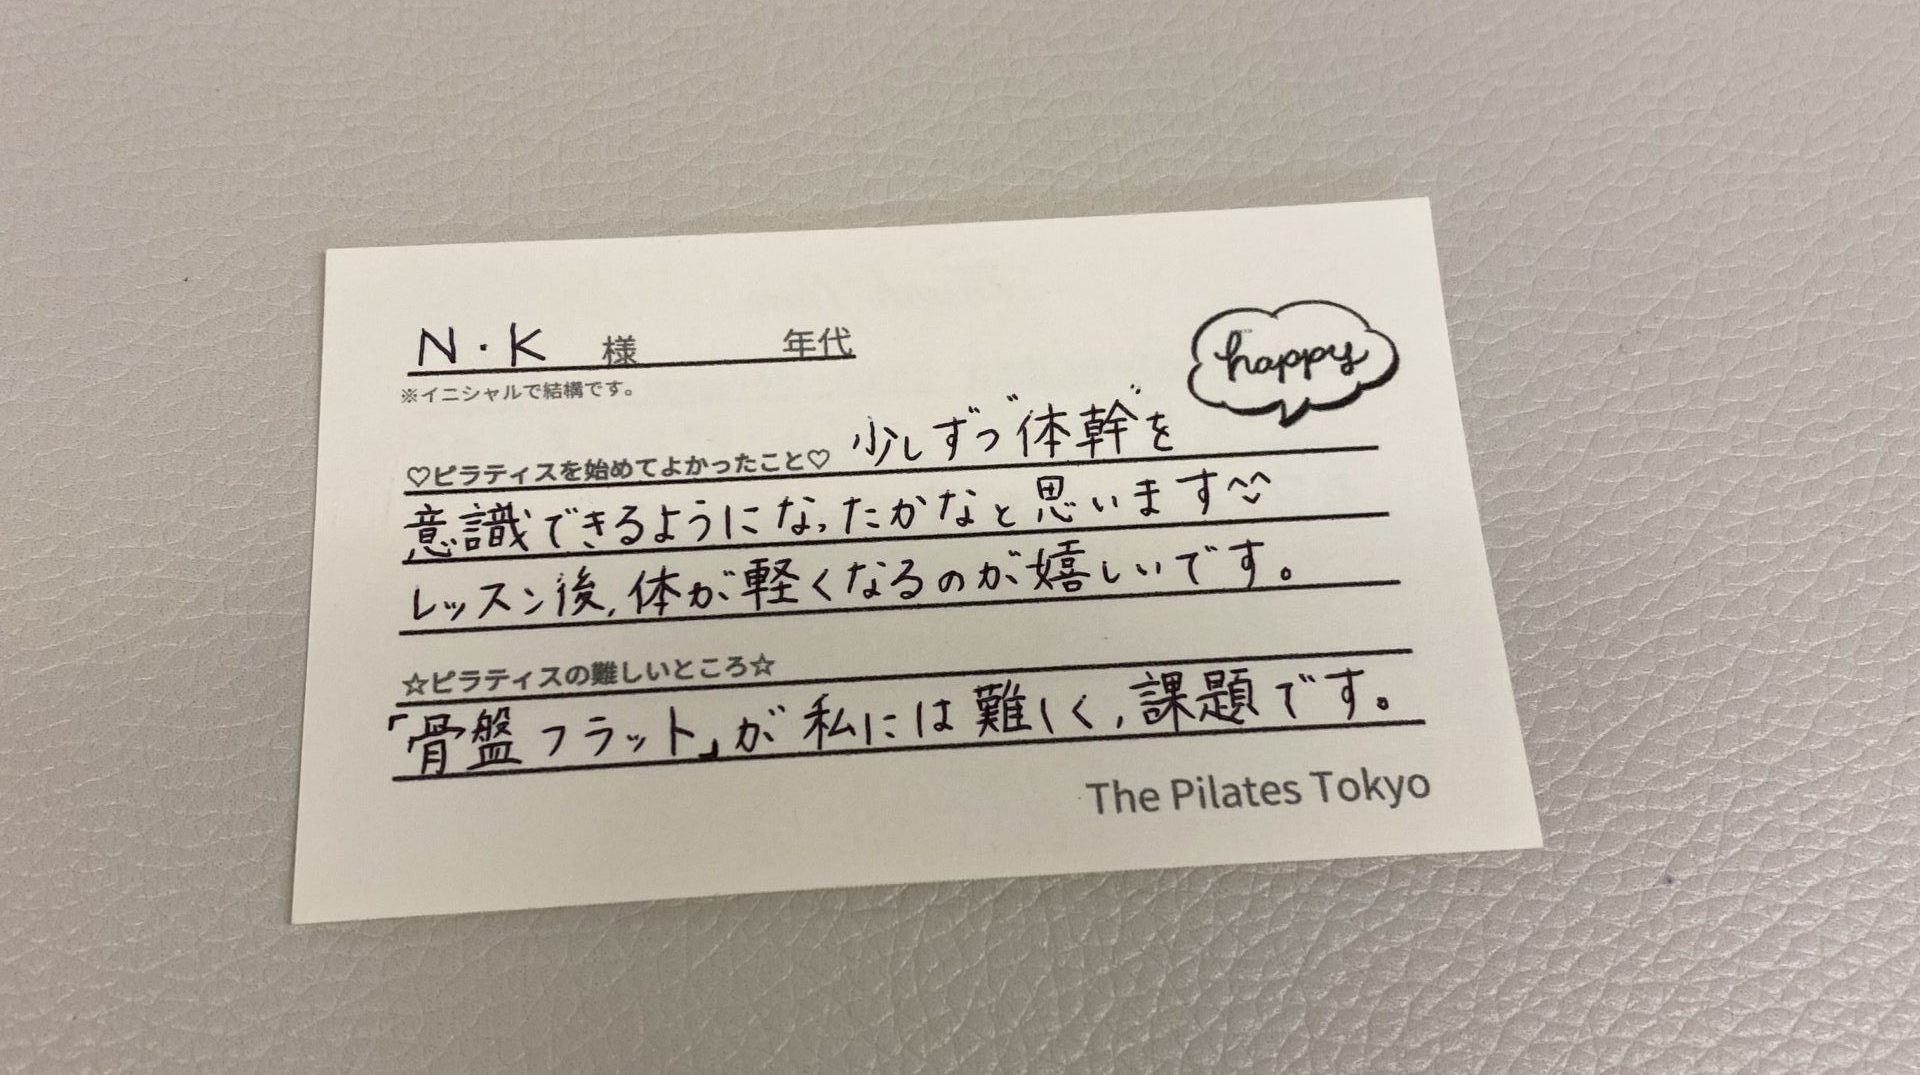 N・K 様 年代
※イニシャルで結構です。
happy
♡ピラティスを始めてよかったこと♡ 少しずつ"体幹"を
意識できるようになったかなと思います^^
レッスン後,体が軽くなるのが嬉しいです。
☆ピラティスの難しいところ☆
「骨盤フラット」が私には難しく,課題です。
The Pilates Tokyo